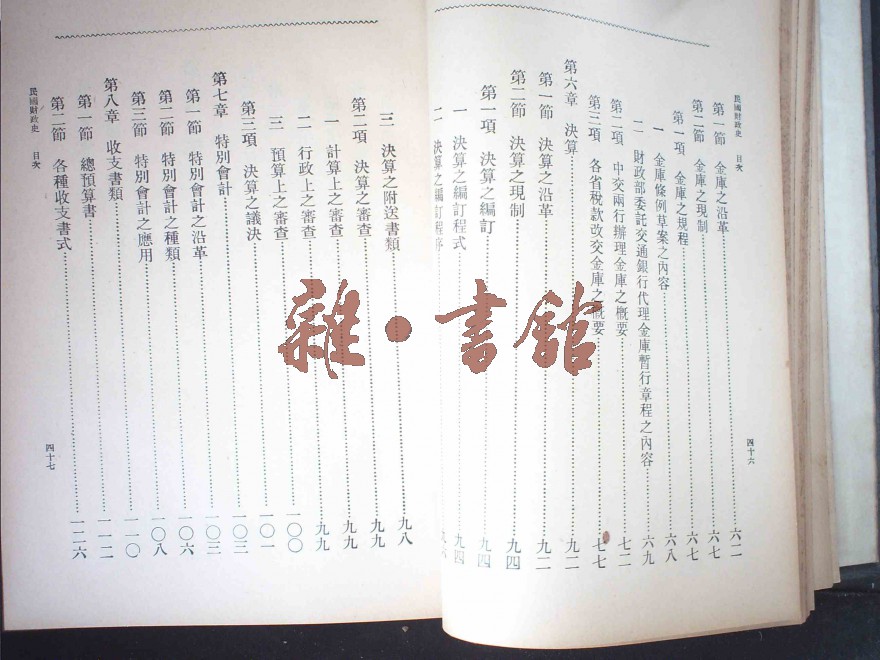 民國財政史 目次
第一節 金庫之沿革 六二
第二節 金庫之現制 六七
第一項 金庫之規程 六七
一 金庫條例草案之內容 六八
二 財政部委託交通銀行代理金庫暫行章程之內容 六九
第二項 中交兩行辦理金庫之概要 七二
第三項 各省稅款改交金庫之概要 七七
第六章 決算 九二
第一節 決算之沿革 九二
第二節 決算之現制 九四
第一項 決算之編訂 九四
一 決算之編訂程式 九四
二 決算之編訂程序
四十六
三 決算之附送書類 九八
第二項 決算之審查 九九
一 計算上之審查 九九
二 行政上之審查 九九
三 預算上之審查 一〇〇
第三項 決算之議決 一〇一
第七章 特別會計 一〇三
第一節 特別會計之沿革 一〇六
第二節 特別會計之種類 一〇八
第三節 特別會計之應用 一一〇
第八章 收支書類
第一節 總預算書 一一二
第二節 各種收支書式 一二六
民國財政史 目次
四十七
雜·書館